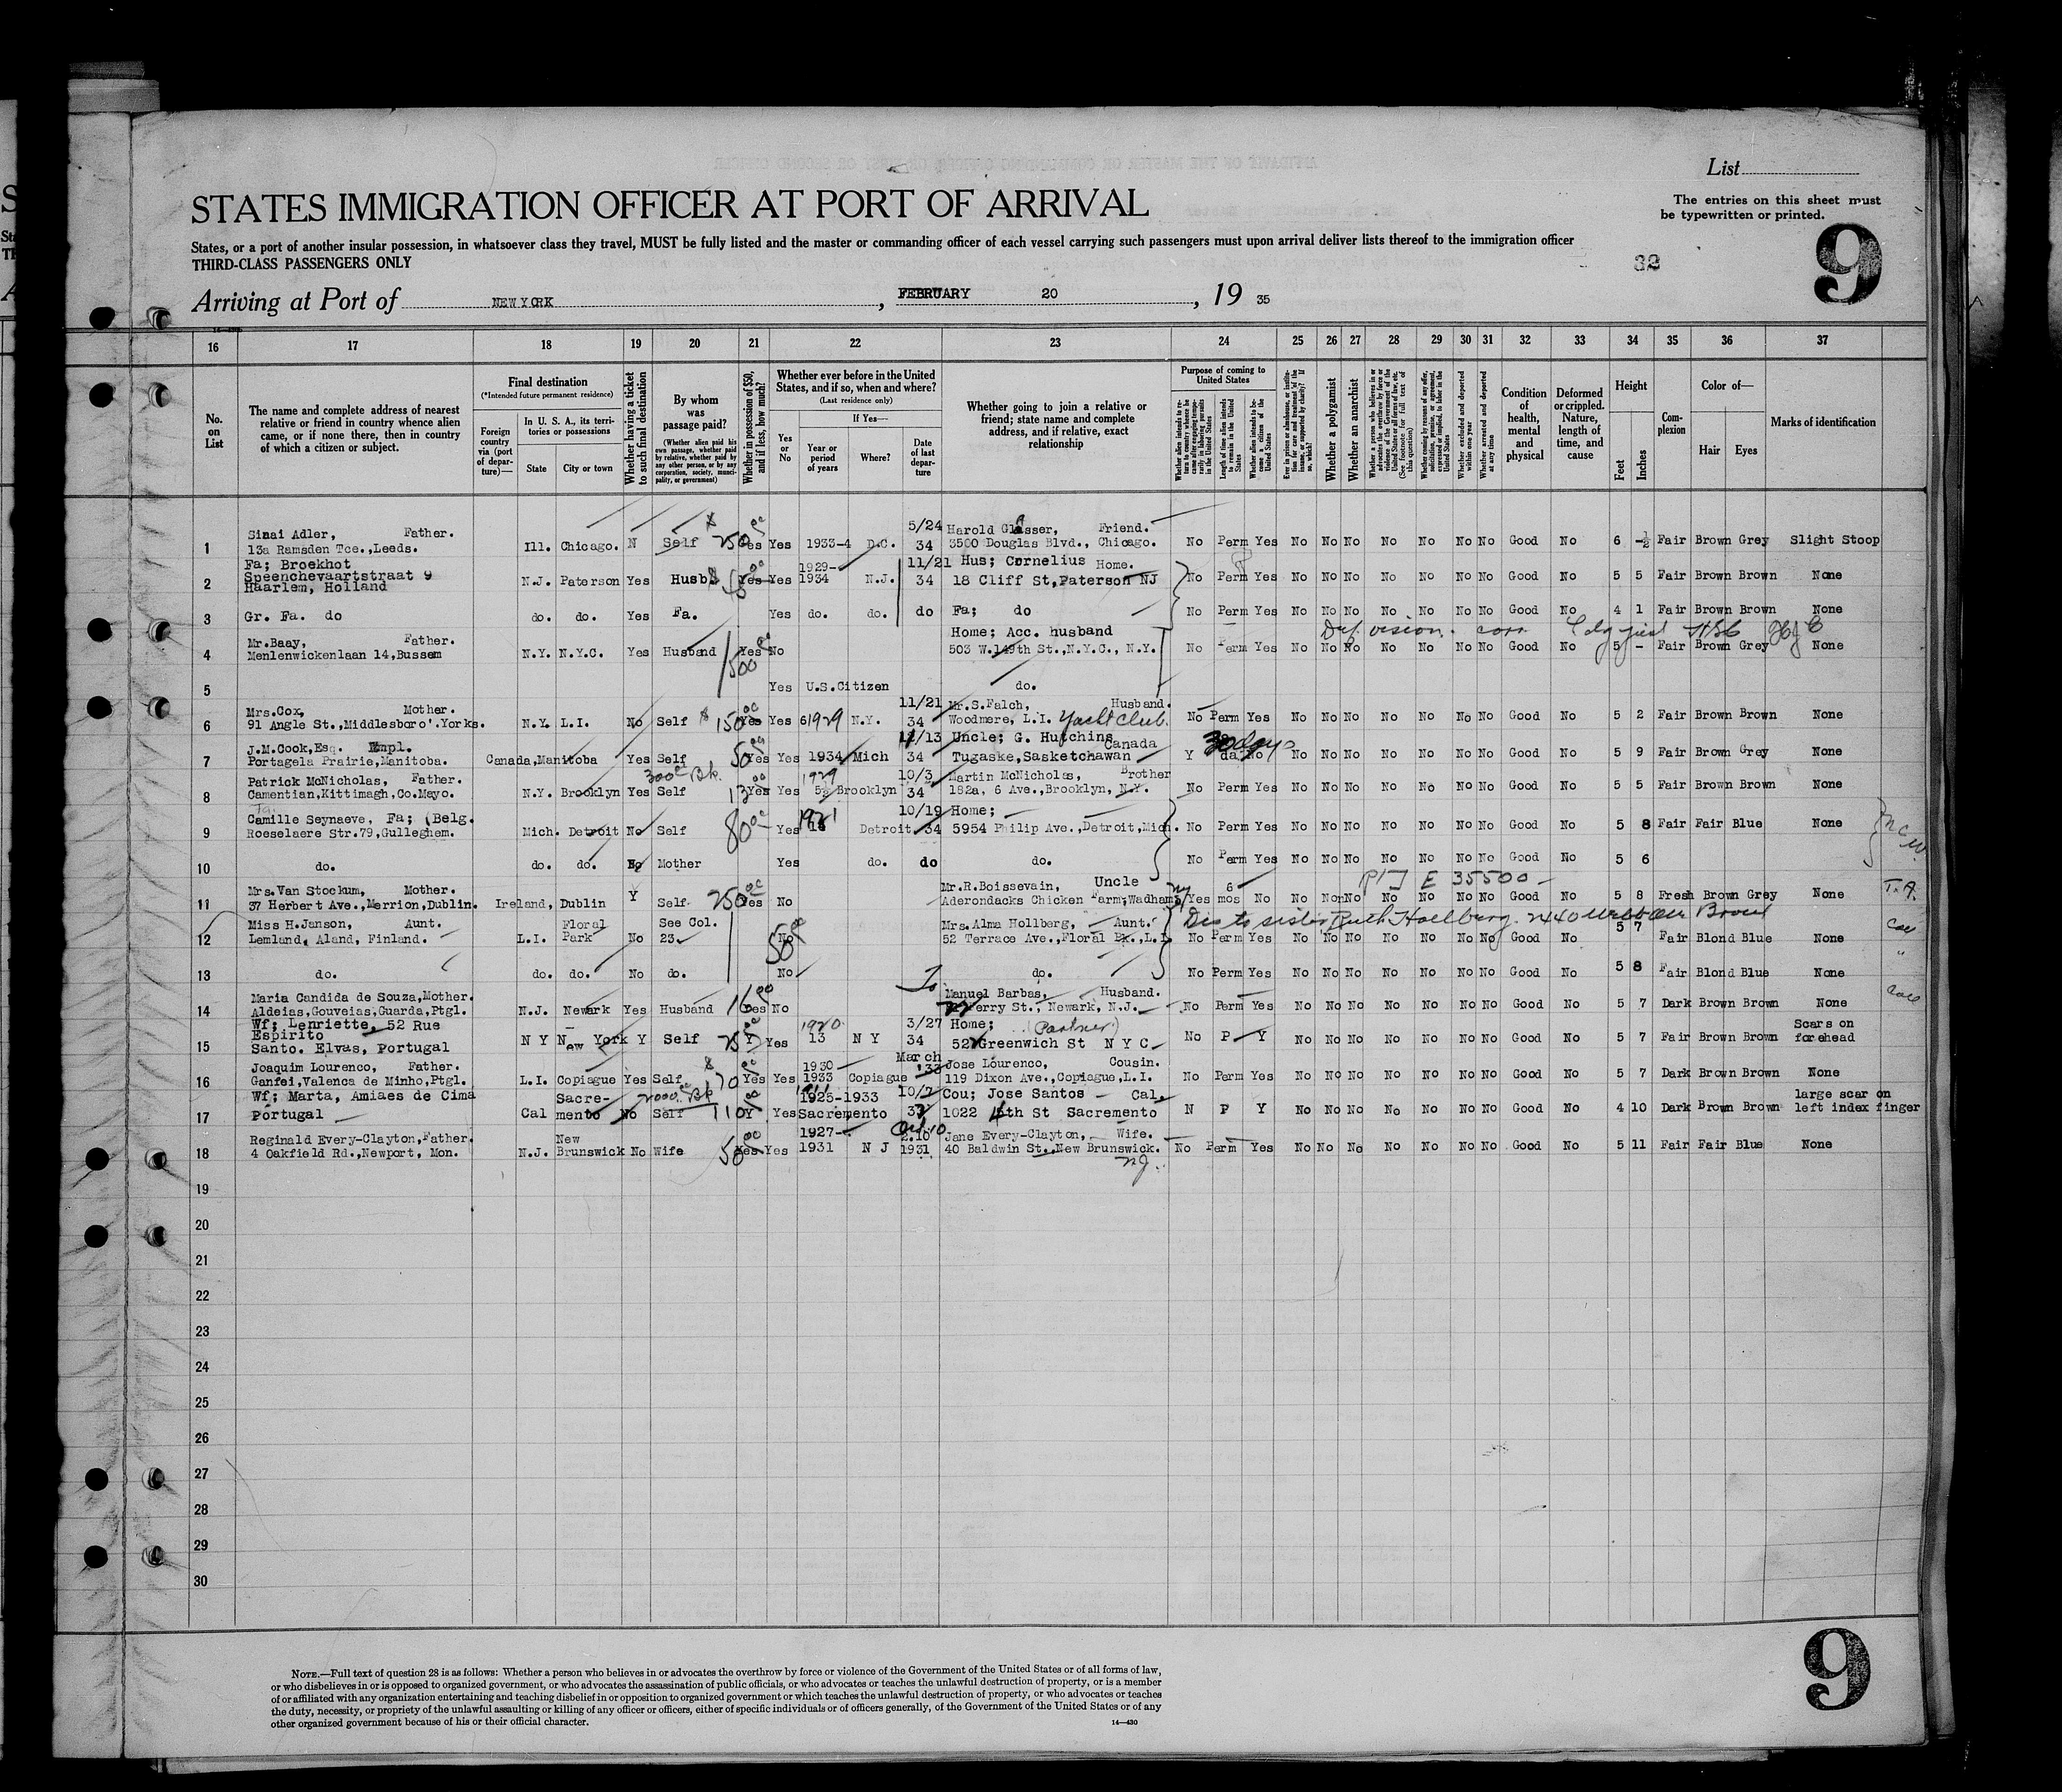 List
The entries on this sheet must
be typewritten or printed.
STATES IMMIGRATION OFFICER AT PORT OF ARRIVAL
States, or a port of another insular possession, in whatsoever class they travel, MUST be fully listed and the master or commanding officer of each vessel carrying such passengers must upon arrival deliver lists thereof to the immigration officer
THIRD-CLASS PASSENGERS ONLY
9
Arriving at Port of NEW YORK, FEBRUARY 20, 19 35
16 17 18 19 20 21 22 23 24 25 26 27 28 29 30 31 32 33 34 35 36 37
No. on List
The name and complete address of nearest
relative or friend in country whence alien
came, or if none there, then in country
of which a citizen or subject.
Final destination
(*Intended future permanent residence)
Foreign country via (port of departure)—
In U. S. A., its territories or possessions
State
City or town
Whether having a ticket to such final destination
By whom was passage paid?
(Whether alien paid his own passage, whether paid by relative, whether paid by any other person, or by any corporation, society, municipality, or government)
Whether in possession of $50, and if less, how much?
Whether ever before in the United States, and if so, when and where?
(Last residence only)
Yes or No
If Yes—
Year or period of years
Where?
Date of last departure
Whether going to join a relative or
friend; state name and complete
address, and if relative, exact
relationship
Purpose of coming to United States
Length of time alien intends to remain in the United States
Whether alien intends to become a citizen of the United States
Whether a polygamist
Whether an anarchist
Whether excluded and deported within one year
Whether arrested and deported at any time
Condition of health, mental and physical
Deformed or crippled. Nature, length of time, and cause
Height
Feet
Inches
Complexion
Color of—
Hair
Eyes
Marks of identification
1 Sinai Adler, Father. 13a Ramsden Tce.,Leeds. Ill. Chicago. N Self 250 Yes Yes 1933-4 D.C. 5/24 34 Harold Glasser, Friend. 3500 Douglas Blvd., Chicago. No Perm Yes No No No No No No No Good No 6 -½ Fair Brown Grey Slight Stoop
2 Fa; Broekhot Speenchevaartstraat 9 Haarlem, Holland N.J. Paterson Yes Husb Yes Yes 1929-1934 N.J. 11/21 34 Hus; Cornelius Home. 18 Cliff St,Paterson NJ No Perm Yes No No No No No No No Good No 5 5 Fair Brown Brown None
3 Gr. Fa. do do. do. Yes Fa. Yes do. do. do Fa; do No Perm Yes No No No No No No No Good No 4 1 Fair Brown Brown None
Def vision
4 Mr.Baay, Father. Menlenwickenlaan 14,Bussem N.Y. N.Y.C. Yes Husband Yes 500 No Home; Acc. husband 503 W.149th St.,N.Y.C., N.Y. No Perm Yes No No No No No No No Good No 5 - Fair Brown Grey None
5 Yes U.S.Citizen do.
6 Mrs.Cox, Mother. 91 Angle St.,Middlesboro'.Yorks. N.Y. L.I. No Self $ 150 Yes Yes 1929 N.Y. 11/21 34 Mr.S.Falch, Husband. Woodmere, L.I. Yacht Club. No Perm Yes No No No No No No No Good No 5 2 Fair Brown Brown None
7 J.M.Cook,Esq. Empl. Portagela Prairie,Manitoba. Canada,Manitoba Yes Self 50 Yes Yes 1934 Mich 12/13 34 Uncle; G. Hutchins Canada Tugaske,Sasketchawan Y 30 days No No No No No No No No Good No 5 9 Fair Brown Grey None
8 Patrick McNicholas, Father. Camentian,Kittimagh,Co.Mayo. N.Y. Brooklyn Yes Self Yes Yes 1929 Brooklyn 10/3 34 Martin McNicholas, Brother 182a, 6 Ave.,Brooklyn, N.Y. No Perm Yes No No No No No No No Good No 5 5 Fair Brown Brown None
9 Camille Seynaeve, Fa; (Belg. Roeselaere Str.79,Gulleghem. Mich. Detroit No Self 80 Yes 1921 Detroit 10/19 34 Home; 5954 Philip Ave.,Detroit,Mich. No Perm Yes No No No No No No No Good No 5 8 Fair Fair Blue None
10 do. do. do. No Mother Yes do. do do. No Perm Yes No No No No No No No Good No 5 6
P/T E 35500 -
11 Mrs.Van Stockum, Mother. 37 Herbert Ave.,Merrion,Dublin. Ireland, Dublin Y Self 250 Yes No Mr.R.Boissevain, Uncle Aderondacks Chicken Farm,Wadhams NY Yes 6 mos No No No No No No No No Good No 5 8 Fresh Brown Grey None T.A.
Dis to sister Ruth Hollberg 2440 Webster Bronx
12 Miss H.Janson, Aunt. Lemland, Aland, Finland. L.I. Floral Park No See Col. 23 50 No Mrs.Alma Hollberg, Aunt. 52 Terrace Ave.,Floral Pk.,L.I. No Perm Yes No No No No No No No Good No 5 7 Fair Blond Blue None
13 do. do. do. No do. No do. No Perm Yes No No No No No No No Good No 5 8 Fair Blond Blue None
14 Maria Candida de Souza,Mother. Aldeias,Gouveias,Guarda,Ptgl. N.J. Newark Yes Husband 16 Yes No Manuel Barbas, Husband. Ferry St., Newark, N.J. No Perm Yes No No No No No No No Good No 5 7 Dark Brown Brown None
15 Wf; Lenriette, 52 Rue Espirito Santo. Elvas, Portugal N Y New York Y Self 25 Y Yes 1920 13 N Y 3/27 34 Home; (Partner) 527 Greenwich St N Y C No P Y No No No No No No No Good No 5 7 Fair Brown Brown Scars on forehead
16 Joaquim Lourenco, Father. Ganfei,Valenca de Minho,Ptgl. L.I. Copiague Yes Self $ 70 Yes Yes 1930 1933 Copiague March '33 Jose Lourenco, Cousin. 119 Dixon Ave.,Copiague,L.I. No Perm Yes No No No No No No No Good No 5 7 Dark Brown Brown None
17 Wf; Marta, Amiaes de Cima Portugal Cal Sacremento No Self 110 Y Yes 1925-1933 Sacremento Cou; Jose Santos Cal. 1022 th St Sacremento N P Y No No No No No No No Good No 4 10 Dark Brown Brown large scar on left index finger
18 Reginald Every-Clayton,Father. 4 Oakfield Rd.,Newport, Mon. N.J. New Brunswick No Wife 50 Yes Yes 1927-1931 N J Oct 10 1931 Jane Every-Clayton, Wife. 40 Baldwin St.,New Brunswick. NJ. No Perm Yes No No No No No No No Good No 5 11 Fair Fair Blue None
19
20
21
22
23
24
25
26
27
28
29
30
NOTE.—Full text of question 28 is as follows: Whether a person who believes in or advocates the overthrow by force or violence of the Government of the United States or of all forms of law,
or who disbelieves in or is opposed to organized government, or who advocates the assassination of public officials, or who advocates or teaches the unlawful destruction of property, or is a member
of or affiliated with any organization entertaining and teaching disbelief in or opposition to organized government or which teaches the unlawful destruction of property, or who advocates or teaches
the duty, necessity, or propriety of the unlawful assaulting or killing of any officer or officers, either of specific individuals or of officers generally, of the Government of the United States or of any
other organized government because of his or their official character.
14—430
9